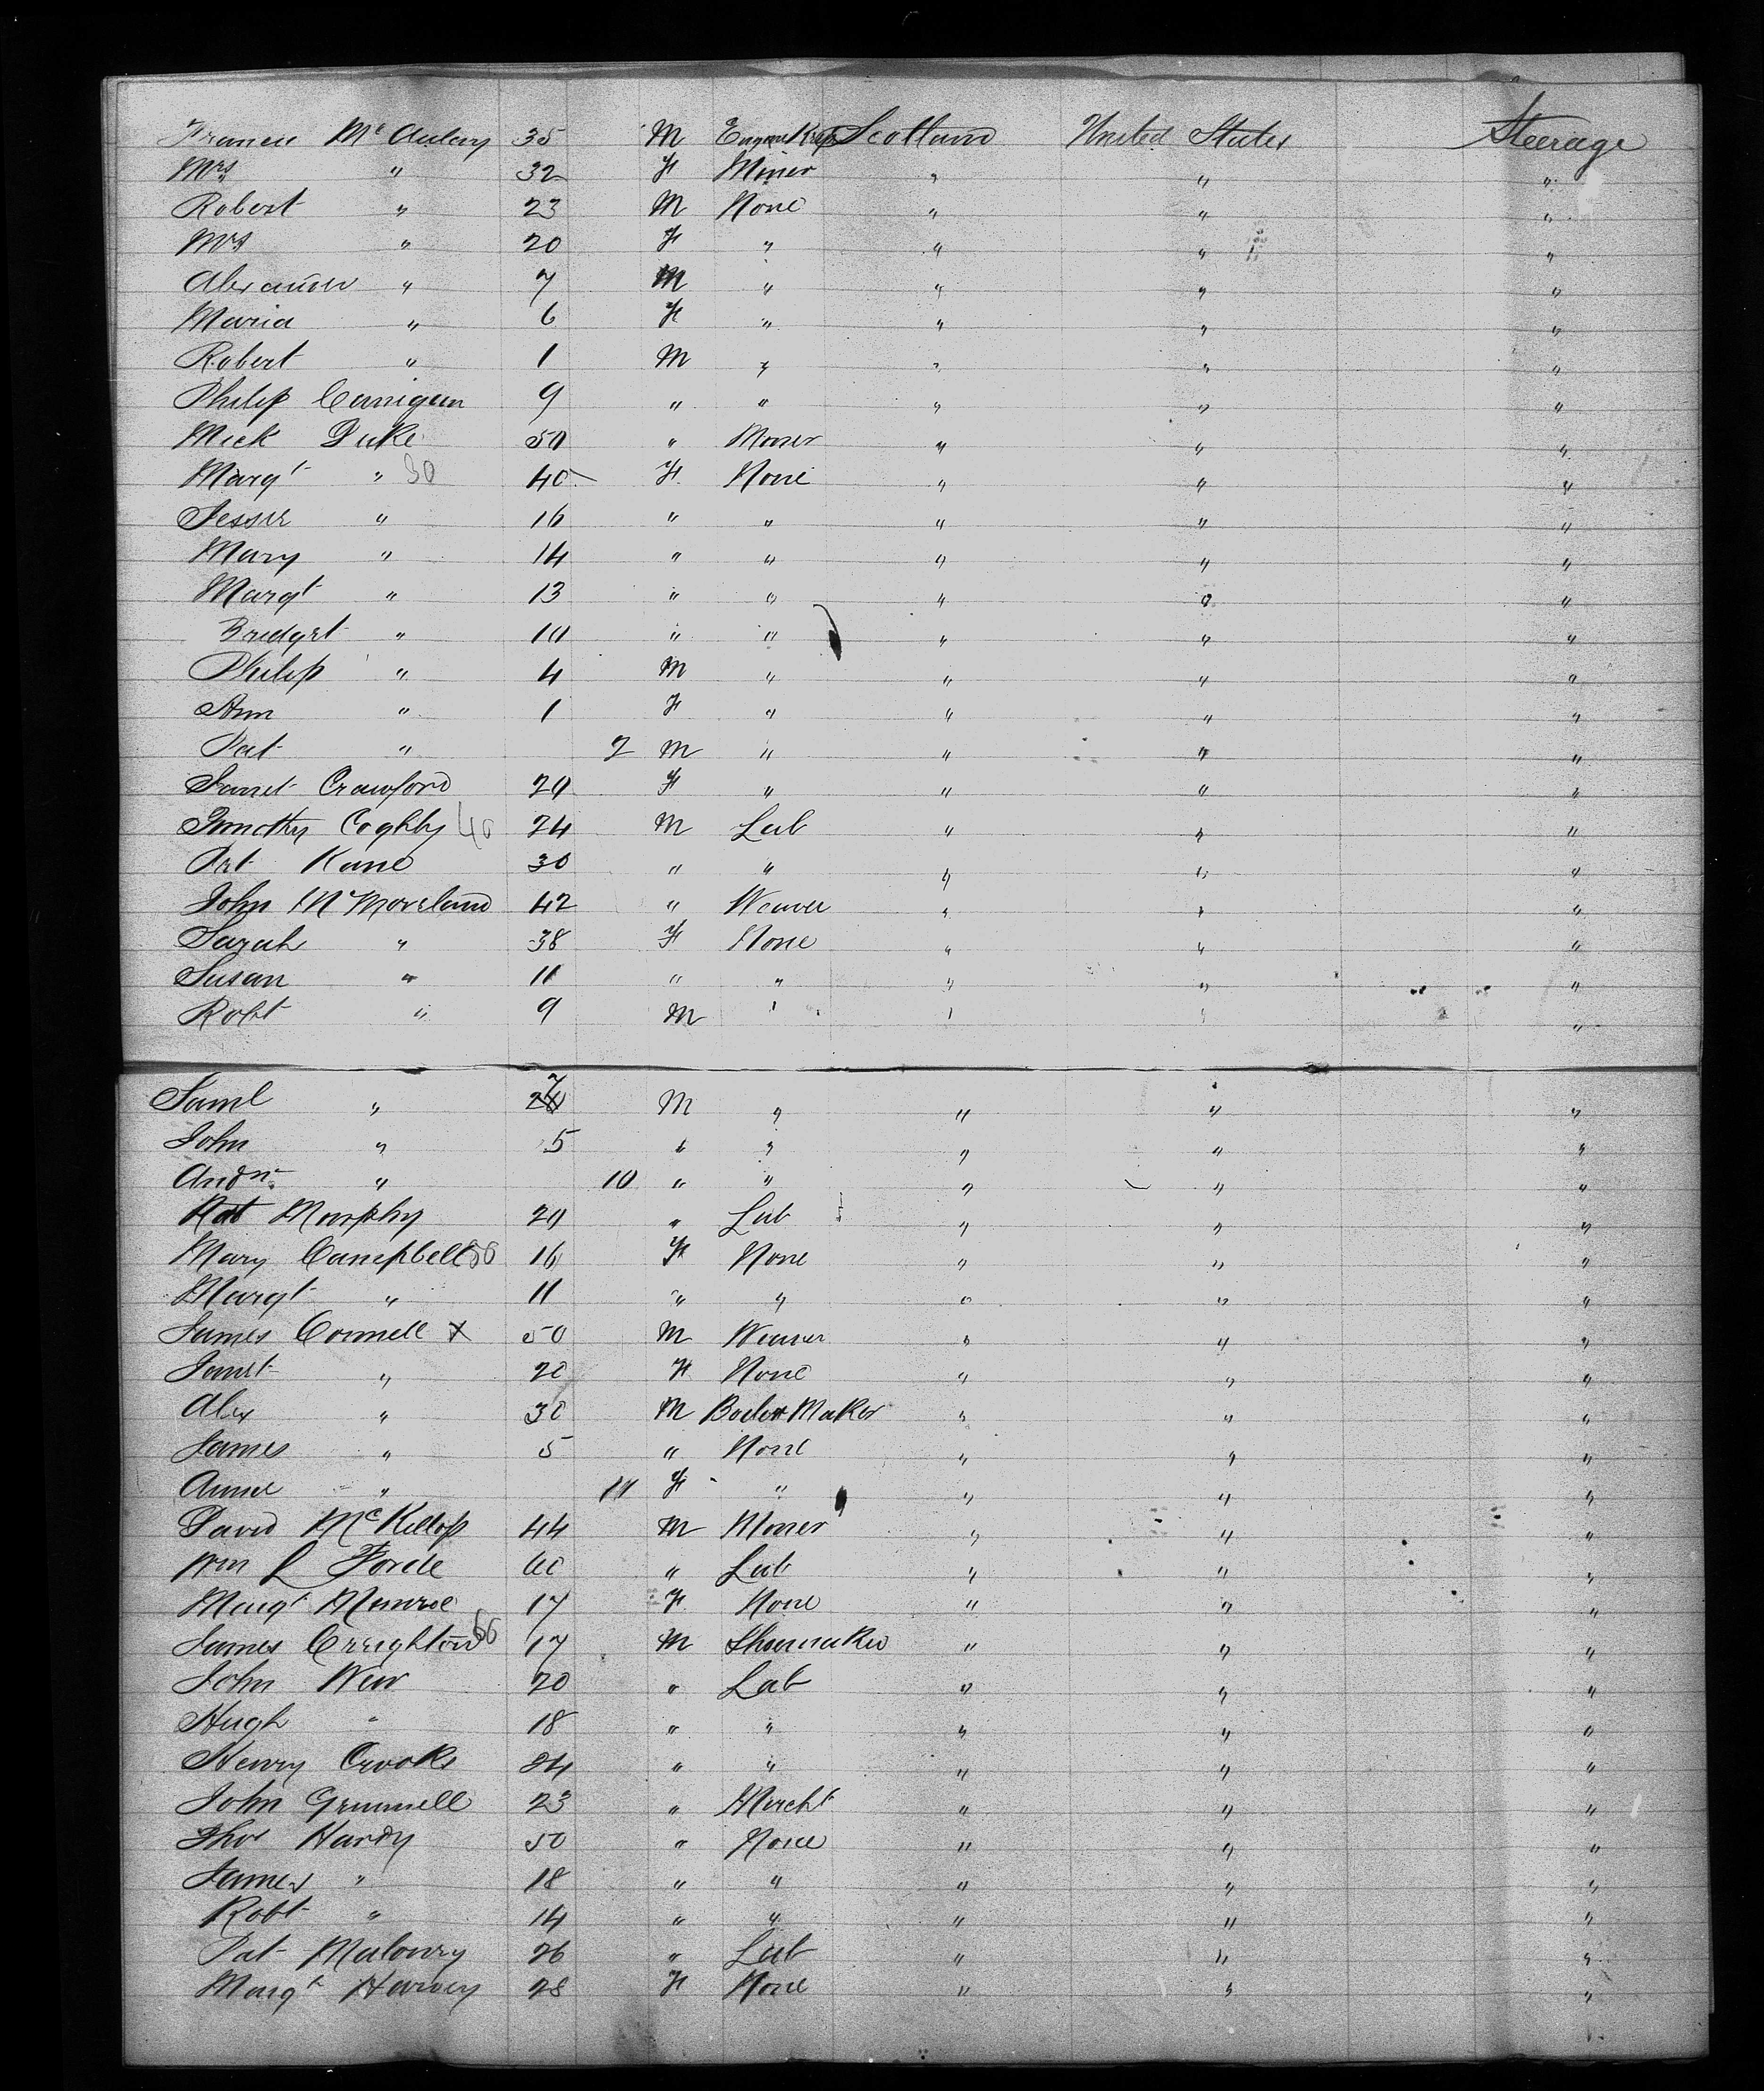 Francis McAulay 35 M Engine Keep Scotland United States Steerage
Mrs " 32 F Miner " " "
Robert " 23 M None " " "
Mrs " 20 F " " " "
Alexander " 7 M " " " "
Maria " 6 F " " " "
Robert " 1 M " " " "
Philip Carrigan 9 " " " " "
Mick Duke 50 " Miner " " "
Margt " 30 40 F None " " "
Jessie " 16 " " " " "
Mary " 14 " " " " "
Margt " 13 " " " " "
Bridget " 10 " " " " "
Philip " 4 M " " " "
Ann " 1 F " " " "
Pat " 2 M " " " "
Janet Crawford 20 F " " " "
Timothy Coghly 40 24 M Lab " " "
Pat Kane 30 " " " " "
John McMoreland 42 " Weaver " " "
Sarah " 38 F None " " "
Susan " 11 " " " " "
Robt " 9 M " " " "
Saml " 7 M " " " "
John " 5 " " " " "
Andw " 10 " " " " "
Pat Murphy 20 " Lab " " "
Mary Campbell 50 16 F None " " "
Margt " 11 " " " " "
James Connell X 50 M Weaver " " "
Janet " 20 F None " " "
Alex " 30 M Boiler Maker " " "
James " 5 " None " " "
Annie " 11 F " " " "
David McKellop 44 M Miner " " "
Wm L Forde 60 " Lab " " "
Margt Munroe 17 F None " " "
James Creighton 60 17 M Shoemaker " " "
John Weir 20 " Lab " " "
Hugh " 18 " " " " "
Henry Crooks 24 " " " " "
John Grummell 23 " Marcht " " "
Thos Hardy 50 " None " " "
James " 18 " " " " "
Robt " 14 " " " " "
Pat Malowry 26 " Lab " " "
Margt Harvey 28 F None " " "